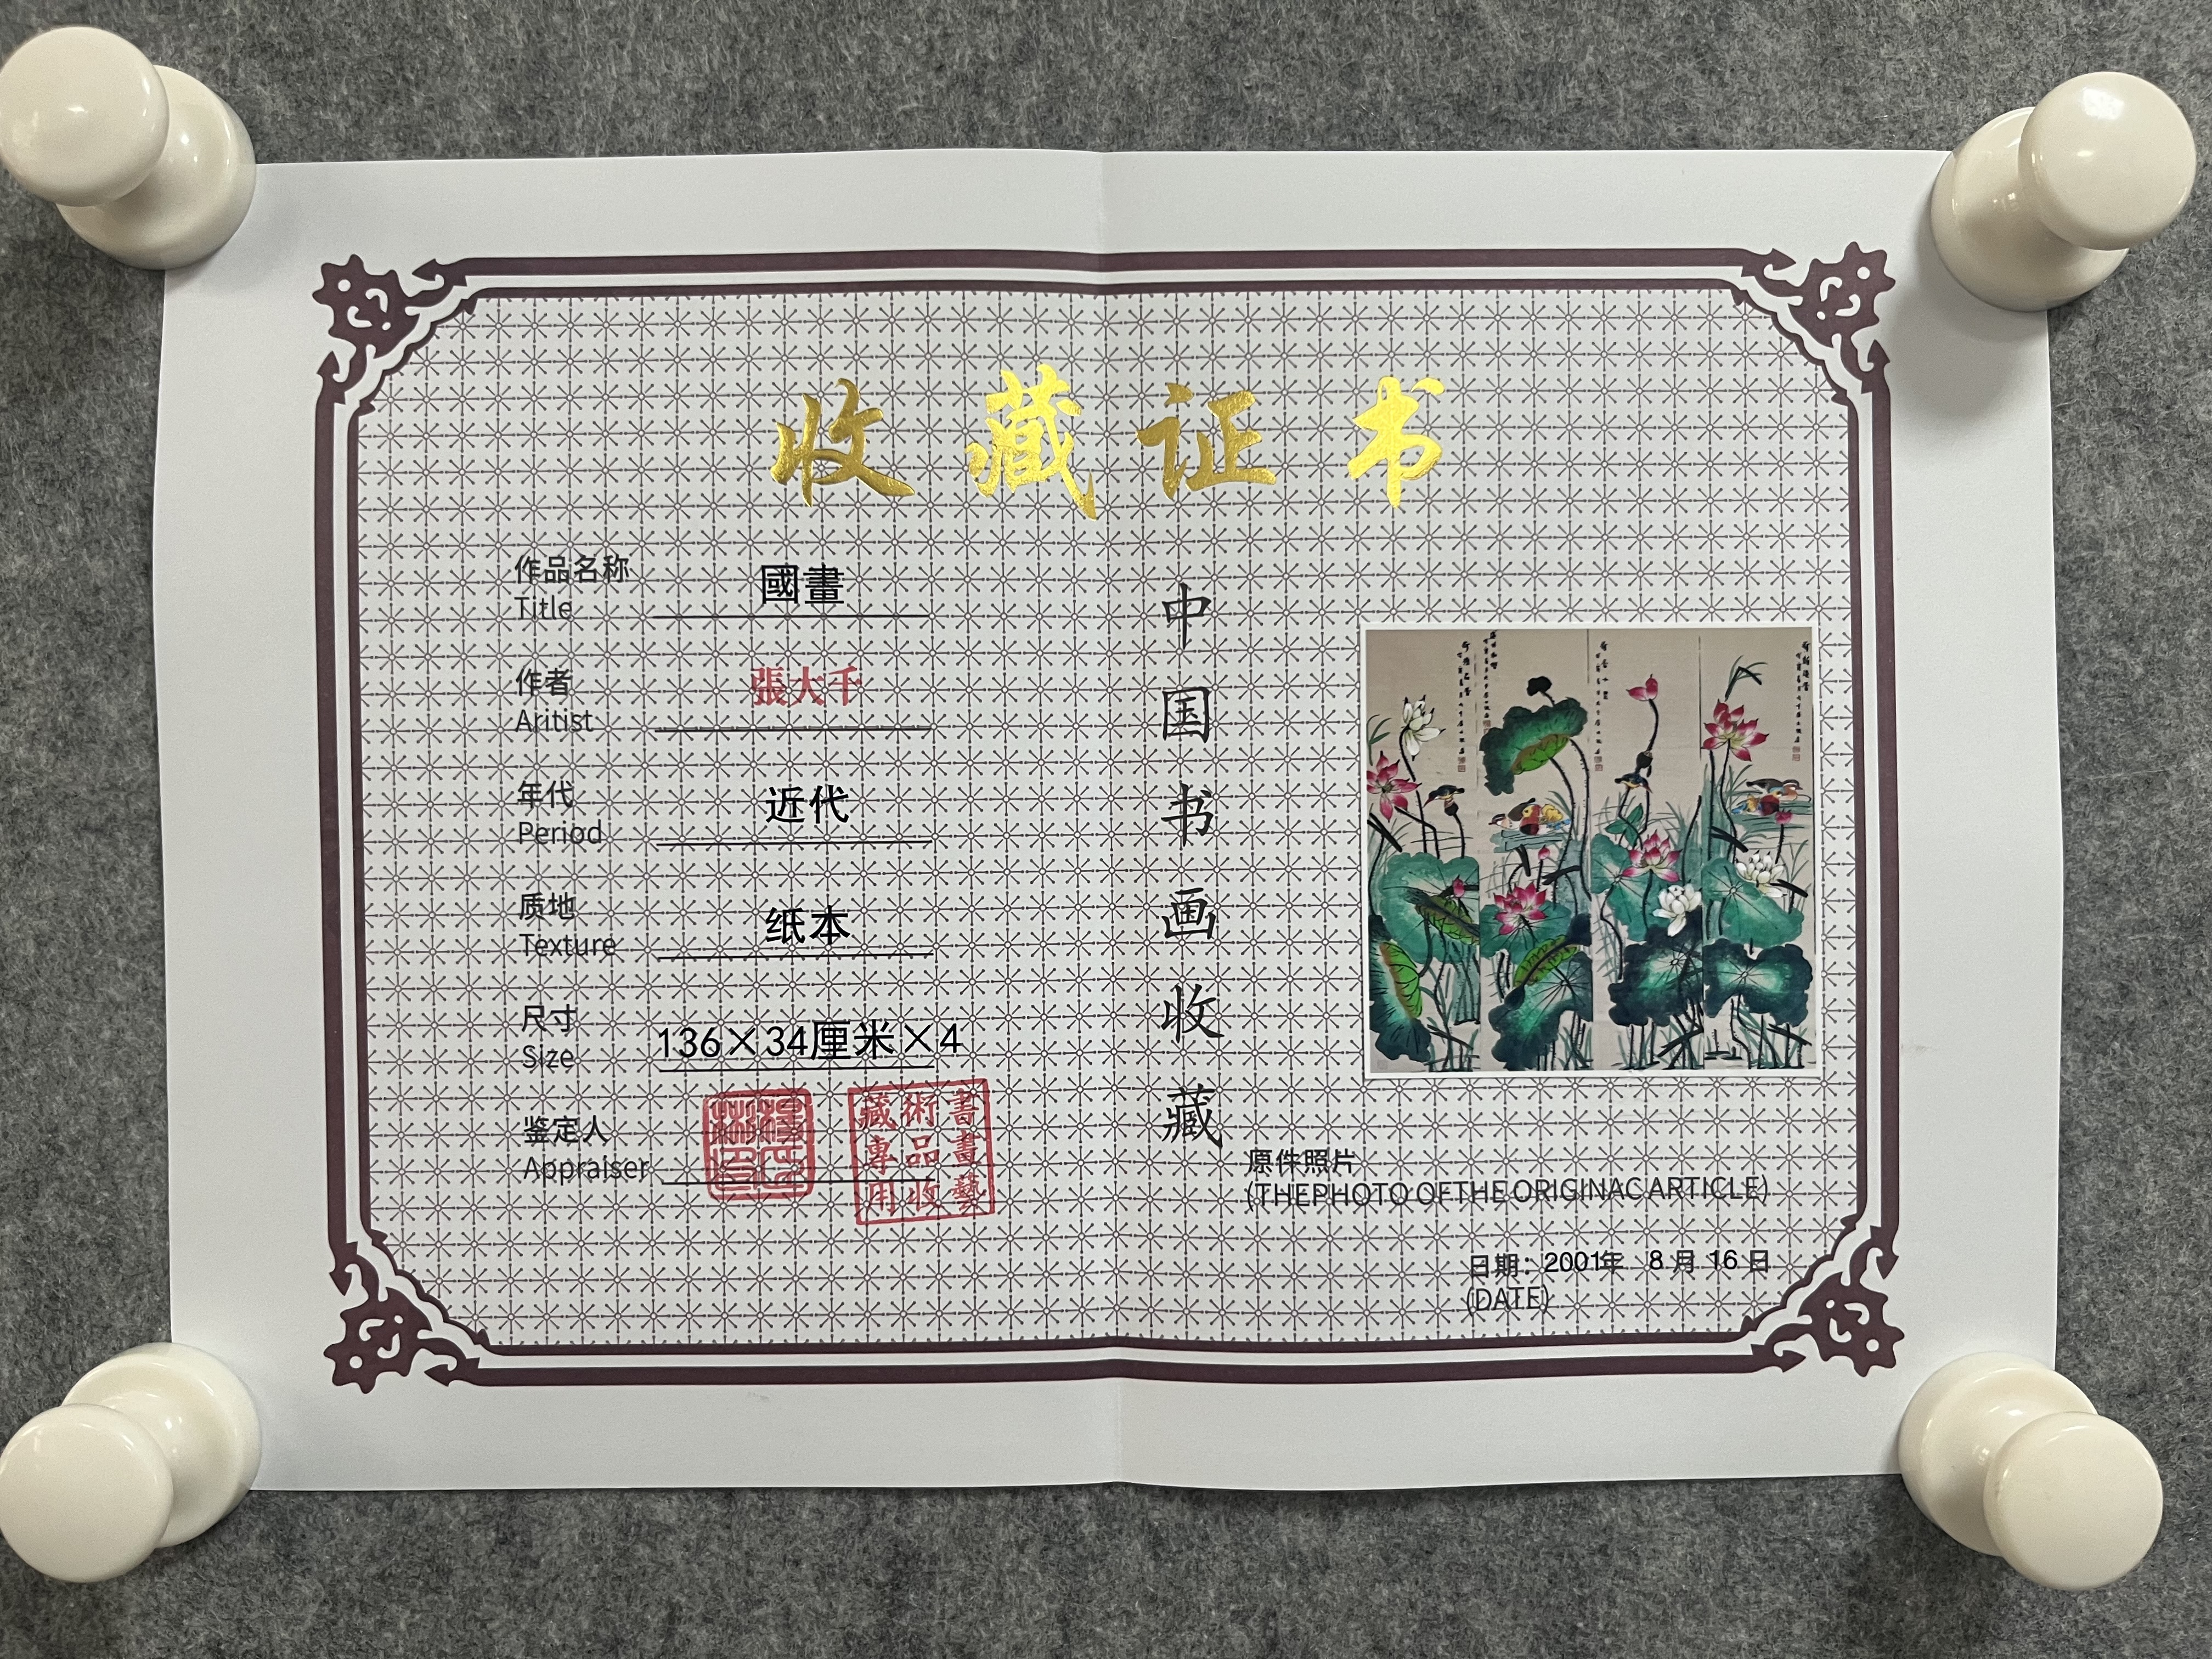 收藏证书
作品名称 國畫
Title
作者 張大千
Aritist
年代 近代
Period
质地 纸本
Texture
尺寸 136×34厘米×4
Size
鉴定人
Appraiser
書畫藝
術品收
藏專用
中国书画收藏
原件照片
(THE PHOTO OF THE ORIGINAC ARTICLE)
日期：2001年 8月16日
(DATE)